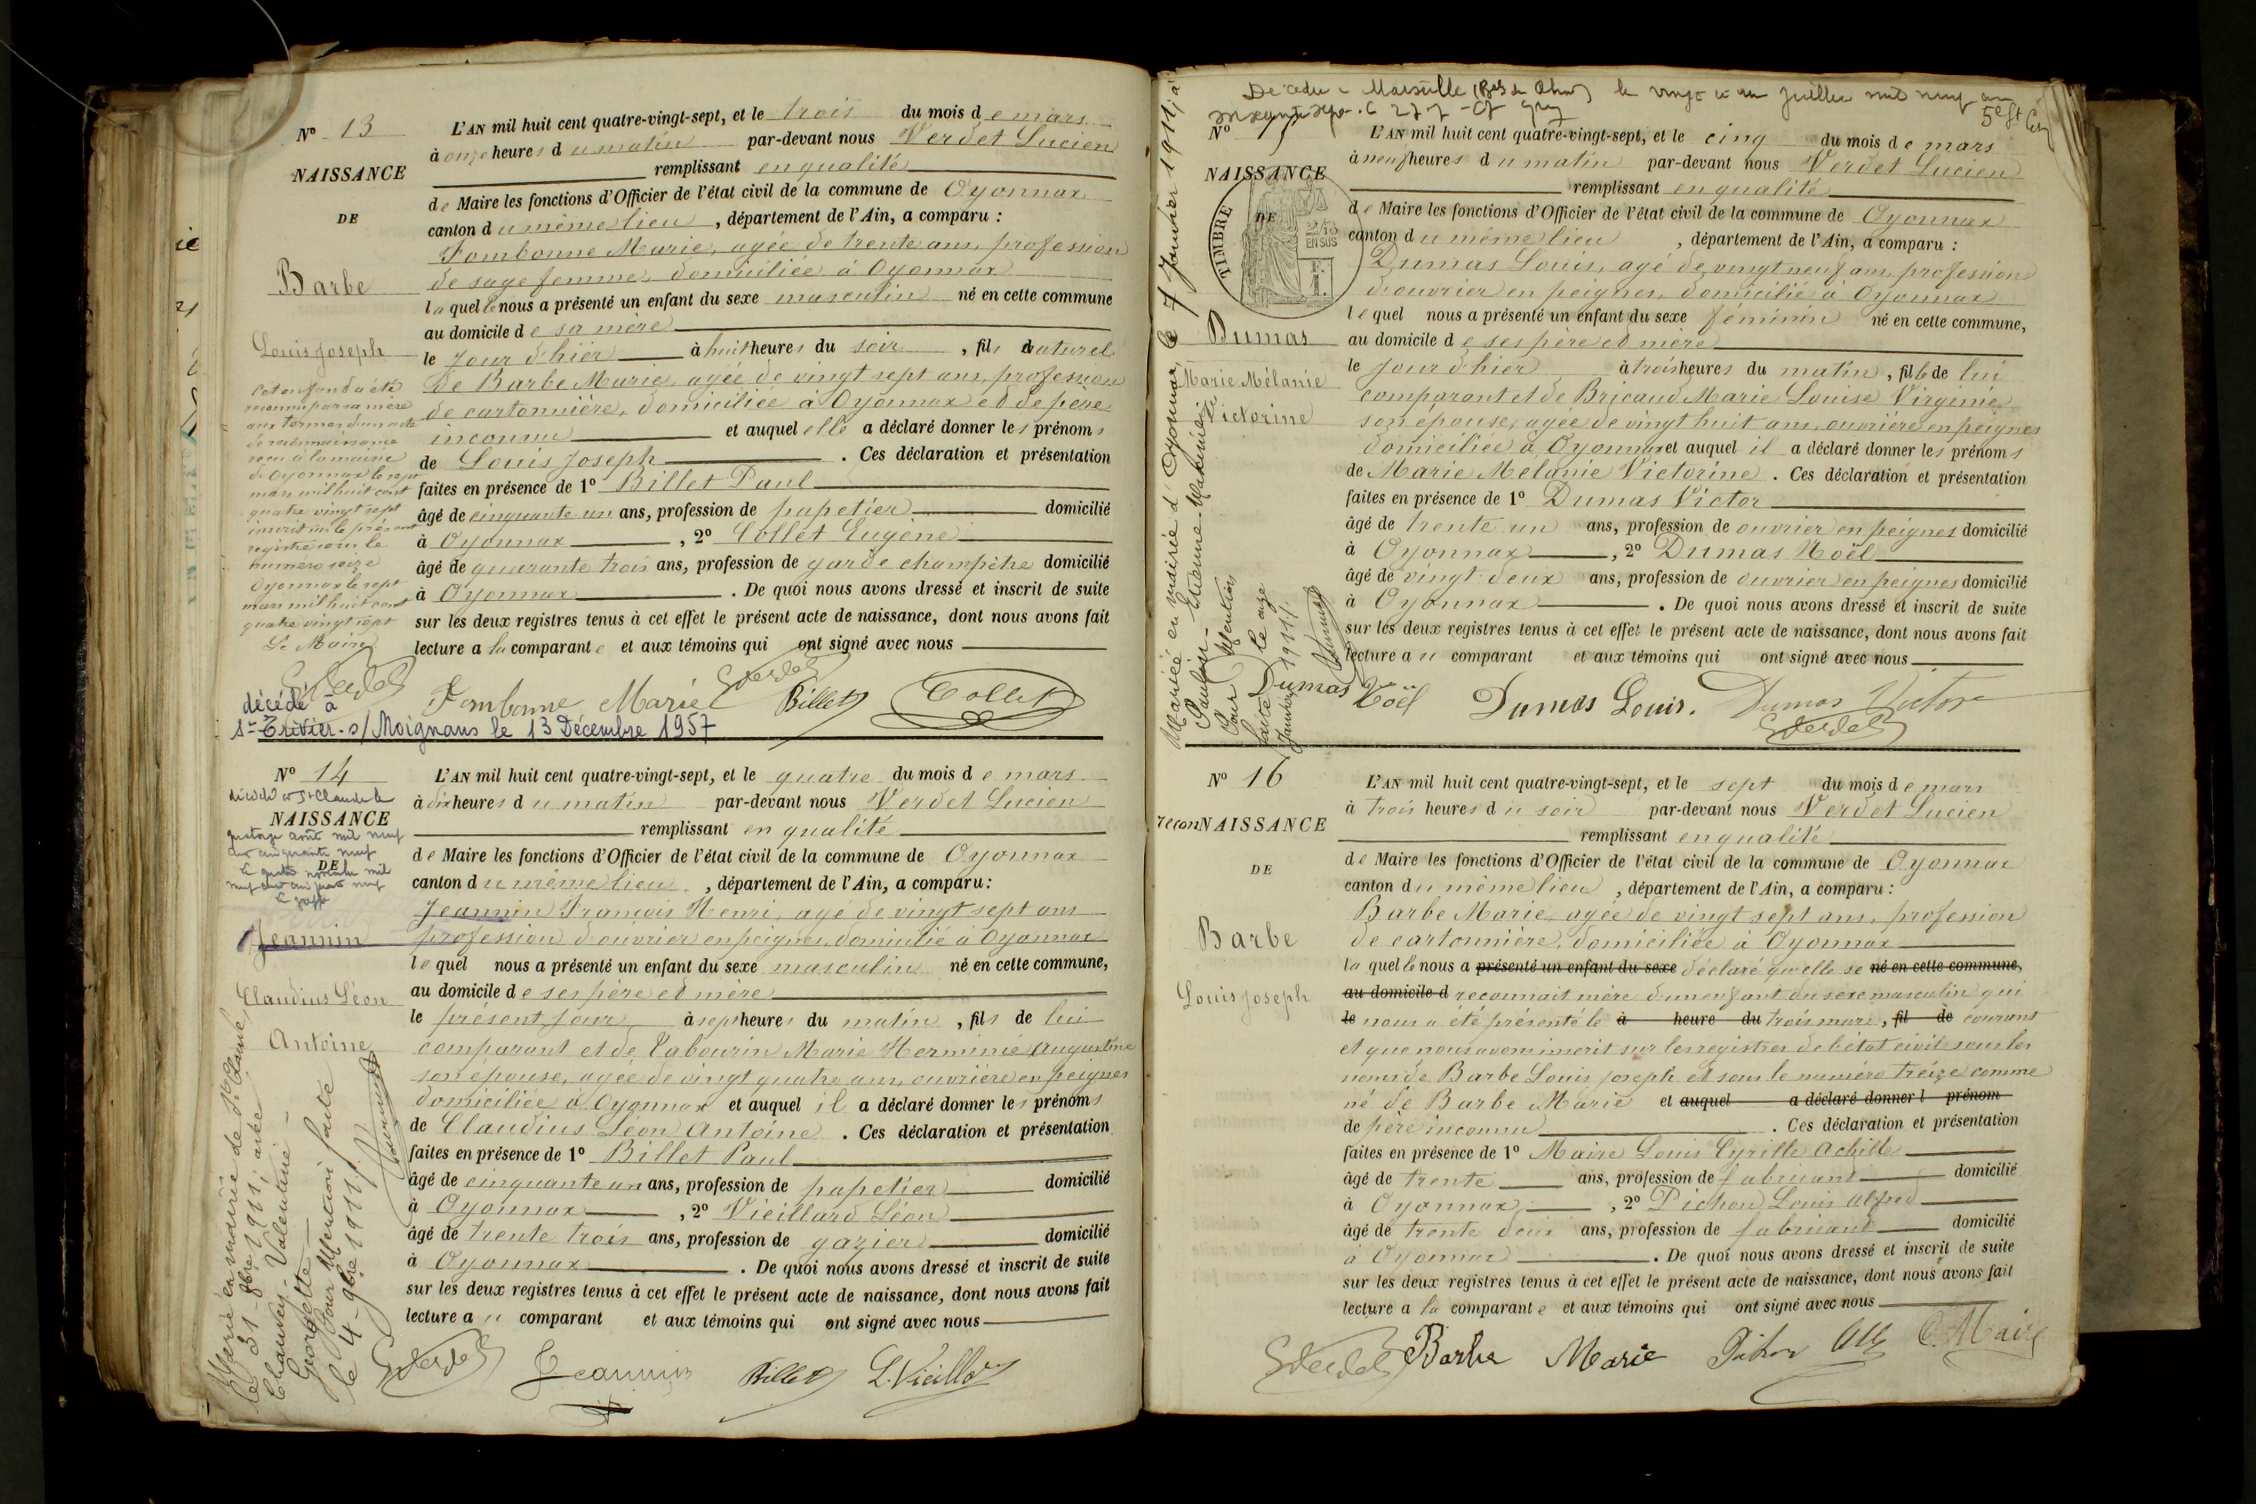 Nº 13
NAISSANCE
DE
Barbe
Louis Joseph
Cet enfant a été
reconnu par sa mère
aux termes d'un acte
de reconnaissance
reçu à la mairie
d'Oyonnax le sept
mars mil huit cent
quatre vingt sept
inscrit sur le présent
registre sous le
numéro seize
Oyonnax le sept
mars mil huit cent
quatre vingt sept
Le Maire
Verdet
décédé à
St-Trivier-s/Moignans le 13 Décembre 1957
L'AN mil huit cent quatre-vingt-sept, et le trois du mois de mars
à onze heures du matin par-devant nous Verdet Lucien
remplissant en qualité
de Maire les fonctions d'Officier de l'état civil de la commune de Oyonnax
canton du même lieu, département de l'Ain, a comparu :
Fombonne Marie, agée de trente ans, profession
de sage femme, domiciliée à Oyonnax
laquelle nous a présenté un enfant du sexe masculin né en cette commune
au domicile de sa mère
le jour d'hier à huit heures du soir, fils naturel
de Barbe Marie, agée de vingt sept ans, profession
de cartonnière, domiciliée à Oyonnax et de père
inconnu et auquel elle a déclaré donner les prénoms
de Louis Joseph. Ces déclaration et présentation
faites en présence de 1º Billet Paul
âgé de cinquante un ans, profession de papetier domicilié
à Oyonnax, 2º Collet Eugène
âgé de quarante trois ans, profession de garde champêtre domicilié
à Oyonnax. De quoi nous avons dressé et inscrit de suite
sur les deux registres tenus à cet effet le présent acte de naissance, dont nous avons fait
lecture a la comparante et aux témoins qui ont signé avec nous
Fombonne Marie Verdet Billet Collet
Nº 14
décédé à St Claude le
NAISSANCE
quatorze août mil neuf
cent cinquante neuf
DE
Jeannin
Claudius Léon
Antoine
Marié en mairie de St Claude,
le 31-8bre 1911, avec
Chauvey-Valentine-
Georgette-
Pour Mention faite
le 4-9bre 1911./.
L'AN mil huit cent quatre-vingt-sept, et le quatre du mois de mars
à dix heures du matin par-devant nous Verdet Lucien
remplissant en qualité
de Maire les fonctions d'Officier de l'état civil de la commune de Oyonnax
canton du même lieu, département de l'Ain, a comparu :
Jeannin François Henri, agé de vingt sept ans
profession d'ouvrier en peignes, domicilié à Oyonnax
lequel nous a présenté un enfant du sexe masculin né en cette commune,
au domicile de ses père et mère
le présent jour à sept heures du matin, fils de lui
comparant et de Tabourin Marie Herminie Augustine
son épouse, agée de vingt quatre ans, ouvrière en peignes
domiciliée à Oyonnax et auquel il a déclaré donner les prénoms
de Claudius Léon Antoine. Ces déclaration et présentation
faites en présence de 1º Billet Paul
âgé de cinquante un ans, profession de papetier domicilié
à Oyonnax, 2º Vieillard Léon
âgé de trente trois ans, profession de gazier domicilié
à Oyonnax. De quoi nous avons dressé et inscrit de suite
sur les deux registres tenus à cet effet le présent acte de naissance, dont nous avons fait
lecture au comparant et aux témoins qui ont signé avec nous
Verdet Jeannin Billet L. Vieillard
Décédée à Marseille (Bches du Rhône) le vingt et un juillet mil neuf cent
Nº 15
NAISSANCE
TIMBRE
DE
2/10 EN SUS
Dumas
Marie Mélanie
Victorine
Mariée en mairie d'Oyonnax, le 7 Janvier 1911, à
Paulin-Etienne-
Pour Mention
faite le onze
Janvier 1911./.
L'AN mil huit cent quatre-vingt-sept, et le cinq du mois de mars
à neuf heures du matin par-devant nous Verdet Lucien
remplissant en qualité
de Maire les fonctions d'Officier de l'état civil de la commune de Oyonnax
canton du même lieu, département de l'Ain, a comparu :
Dumas Louis, agé de vingt neuf ans, profession
d'ouvrier en peignes, domicilié à Oyonnax
lequel nous a présenté un enfant du sexe féminin né en cette commune,
au domicile de ses père et mère
le jour d'hier à trois heures du matin, fille de lui
comparant et de Bricaud Marie Louise Virginie
son épouse, agée de vingt huit ans, ouvrière en peignes
domiciliée à Oyonnax et auquel il a déclaré donner les prénoms
de Marie Mélanie Victorine. Ces déclaration et présentation
faites en présence de 1º Dumas Victor
âgé de trente un ans, profession de ouvrier en peignes domicilié
à Oyonnax, 2º Dumas Noël
âgé de vingt deux ans, profession de ouvrier en peignes domicilié
à Oyonnax. De quoi nous avons dressé et inscrit de suite
sur les deux registres tenus à cet effet le présent acte de naissance, dont nous avons fait
lecture au comparant et aux témoins qui ont signé avec nous
Dumas Noël Dumas Louis. Dumas Victor
Verdet
Nº 16
reconNAISSANCE
DE
Barbe
Louis Joseph
L'AN mil huit cent quatre-vingt-sept, et le sept du mois de mars
à trois heures du soir par-devant nous Verdet Lucien
remplissant en qualité
de Maire les fonctions d'Officier de l'état civil de la commune de Oyonnax
canton du même lieu, département de l'Ain, a comparu :
Barbe Marie, agée de vingt sept ans, profession
de cartonnière, domiciliée à Oyonnax
laquelle nous a présenté un enfant du sexe déclaré qu'elle se né en cette commune,
au domicile d reconnait mère d'un enfant du sexe masculin qui
le nous a été présenté le à heure du trois mars, fil de courant
et que nous avons inscrit sur les registres de l'état civil sous les
noms de Barbe Louis Joseph et sous le numéro treize comme
né de Barbe Marie et auquel a déclaré donner l prénom
de père inconnu. Ces déclaration et présentation
faites en présence de 1º Maire Louis Cyrille Achille
âgé de trente ans, profession de fabricant domicilié
à Oyonnax, 2º Pichon Louis Alfred
âgé de trente deux ans, profession de fabricant domicilié
à Oyonnax. De quoi nous avons dressé et inscrit de suite
sur les deux registres tenus à cet effet le présent acte de naissance, dont nous avons fait
lecture a la comparante et aux témoins qui ont signé avec nous
Verdet Barbe Marie Pichon C. Maire